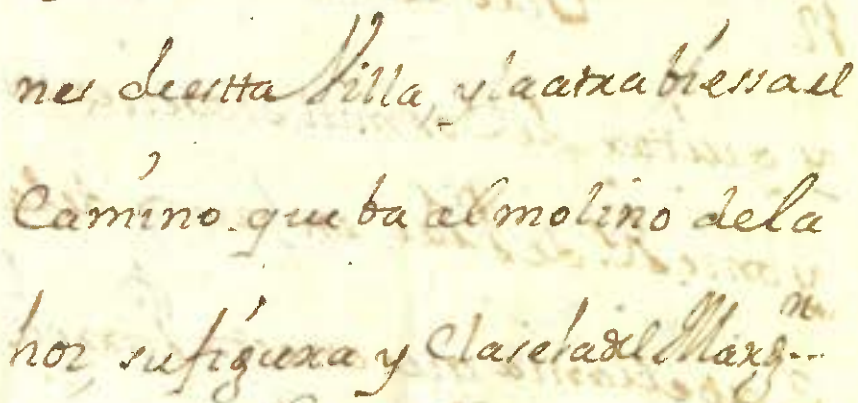 nes de estta Villa, y la atrabiessa el
Camino que ba al molino de la
hoz, su figura y Clase la del Marg.n